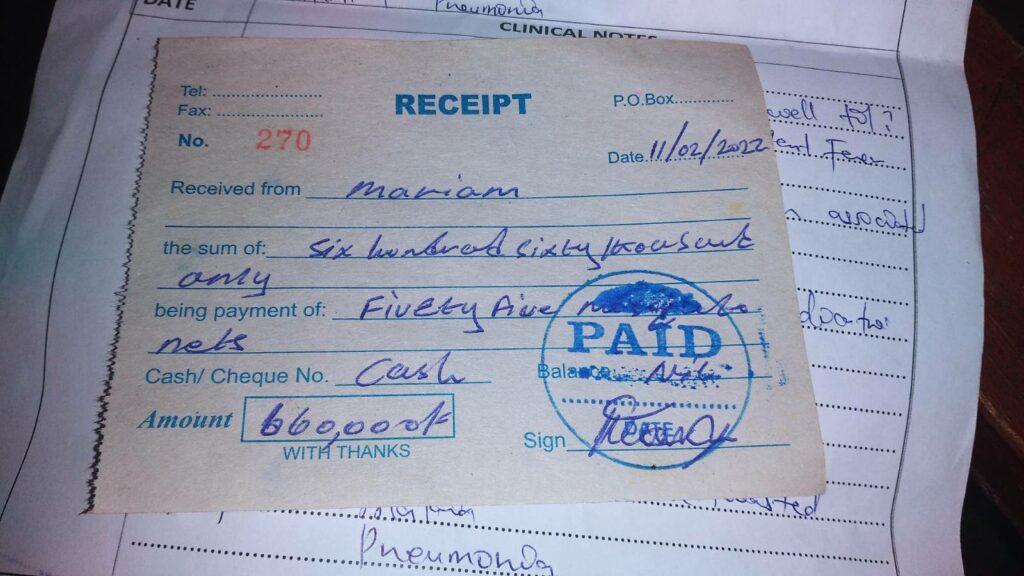 DATE
Pneumonia
CLINICAL NOTES
Tel:
Fax:
RECEIPT
P.O.Box
No. 270
Date 11/02/2022
Received from mariam
the sum of: six hundred sixty thousand
only
being payment of: Fivety Five
nets
PAID
Cash/ Cheque No. Cash
Balance Nil
Amount 660,000/=
WITH THANKS
Sign
DATE
well
Fever
Pneumonia